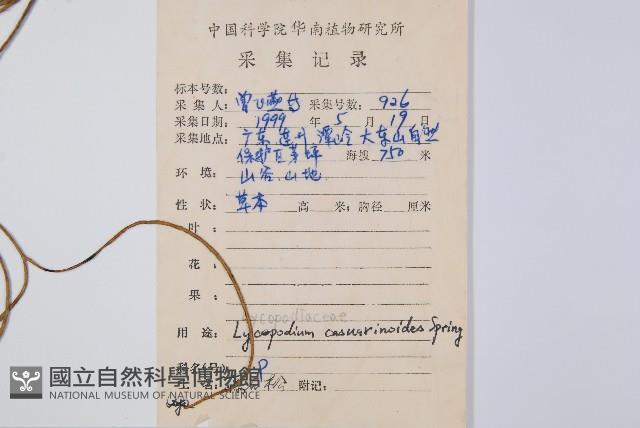 中国科学院华南植物研究所
采集记录
标本号数：
采集人：曾飞燕等 采集号数：926
采集日期：1999 年 5 月 19 日
采集地点：广东 连州 潭岭 大东山自然
保护区茅坪 海拔 750 米
环境：山谷.山地
性状：草本 高 米；胸径 厘米
叶：
花：
果：
Lycopodiaceae
用途：Lycopodium casuarinoides Spring
科名(号)： P
松 附记：
國立自然科學博物館
NATIONAL MUSEUM OF NATURAL SCIENCE